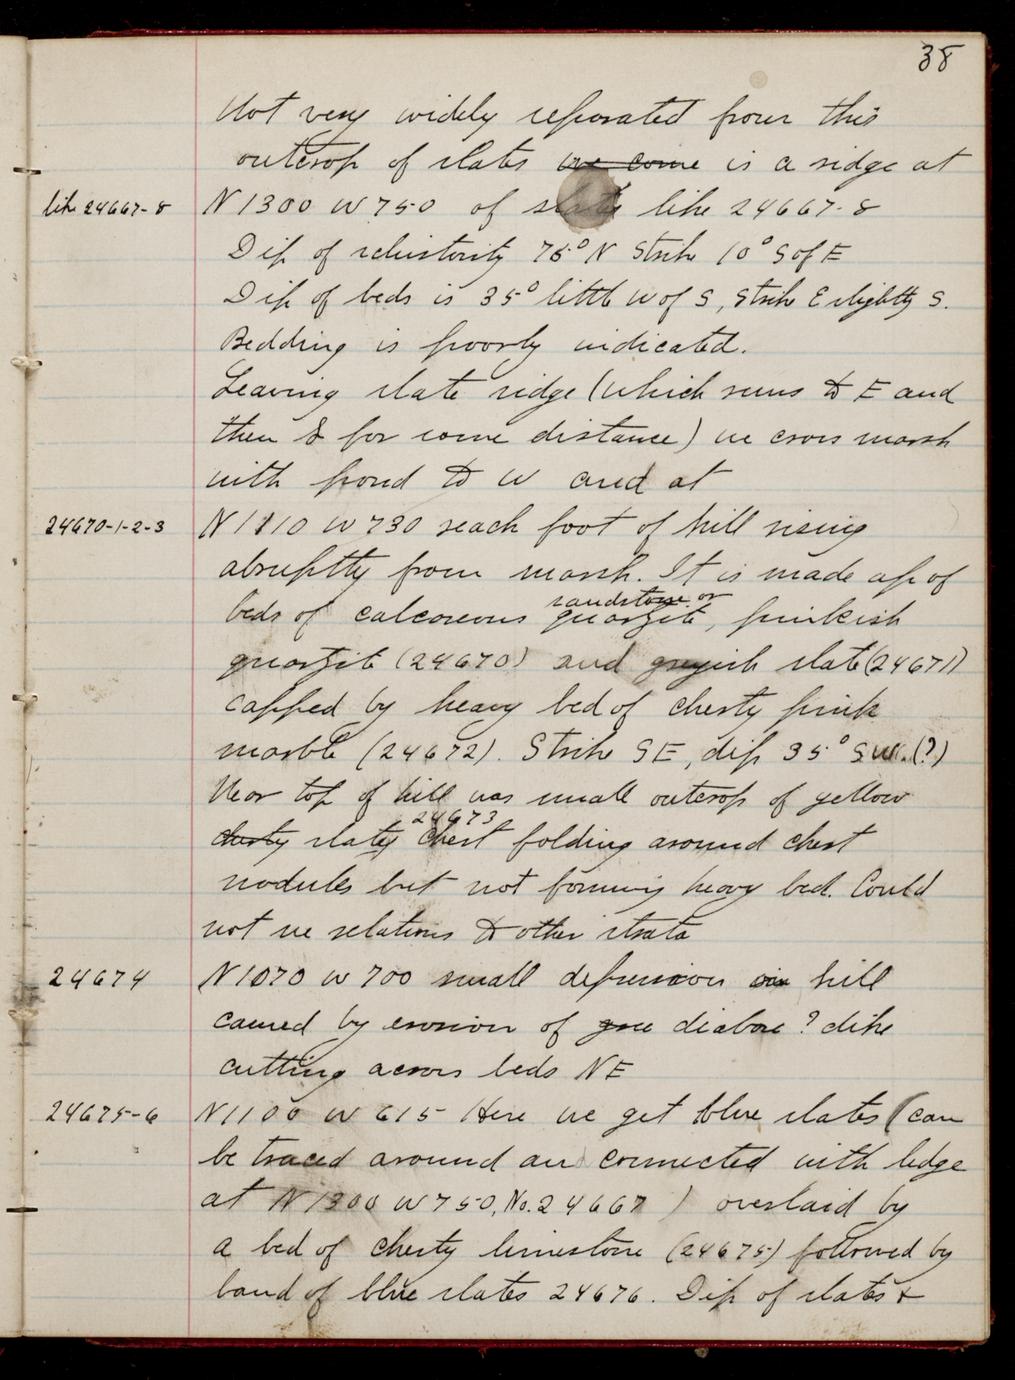 38
Not very widely separated from this
outcrop of slates we come is a ridge at
like 24667-8 N1300 W750 of slate like 24667-8
Dip of schistosity 75° N Strike 10° S of E
Dip of beds is 35° little W of S, Strike E slightly S.
Bedding is poorly indicated.
Leaving slate ridge (which runs to E and
then S for some distance) we cross marsh
with pond to W and at
24670-1-2-3 N1110 W730 reach foot of hill rising
abruptly from marsh. It is made up of
sandstone or
beds of calcareous quartzite, pinkish
quartzite (24670) and greyish slate (24671)
capped by heavy bed of cherty pink
marble (24672). Strike SE, dip 35° SW.(?)
Near top of hill was small outcrop of yellow
24673
cherty slaty chert folding around chert
nodules but not forming heavy bed. Could
not see relations to other strata
24674 N1070 W700 small depression in hill
caused by erosion of diabase? dike
cutting across beds NE
24675-6 N1100 W615 Here we get blue slates (can
be traced around and connected with ledge
at N1300 W750, No. 24667) overlaid by
a bed of cherty limestone (24675) followed by
band of blue slates 24676. Dip of slates &